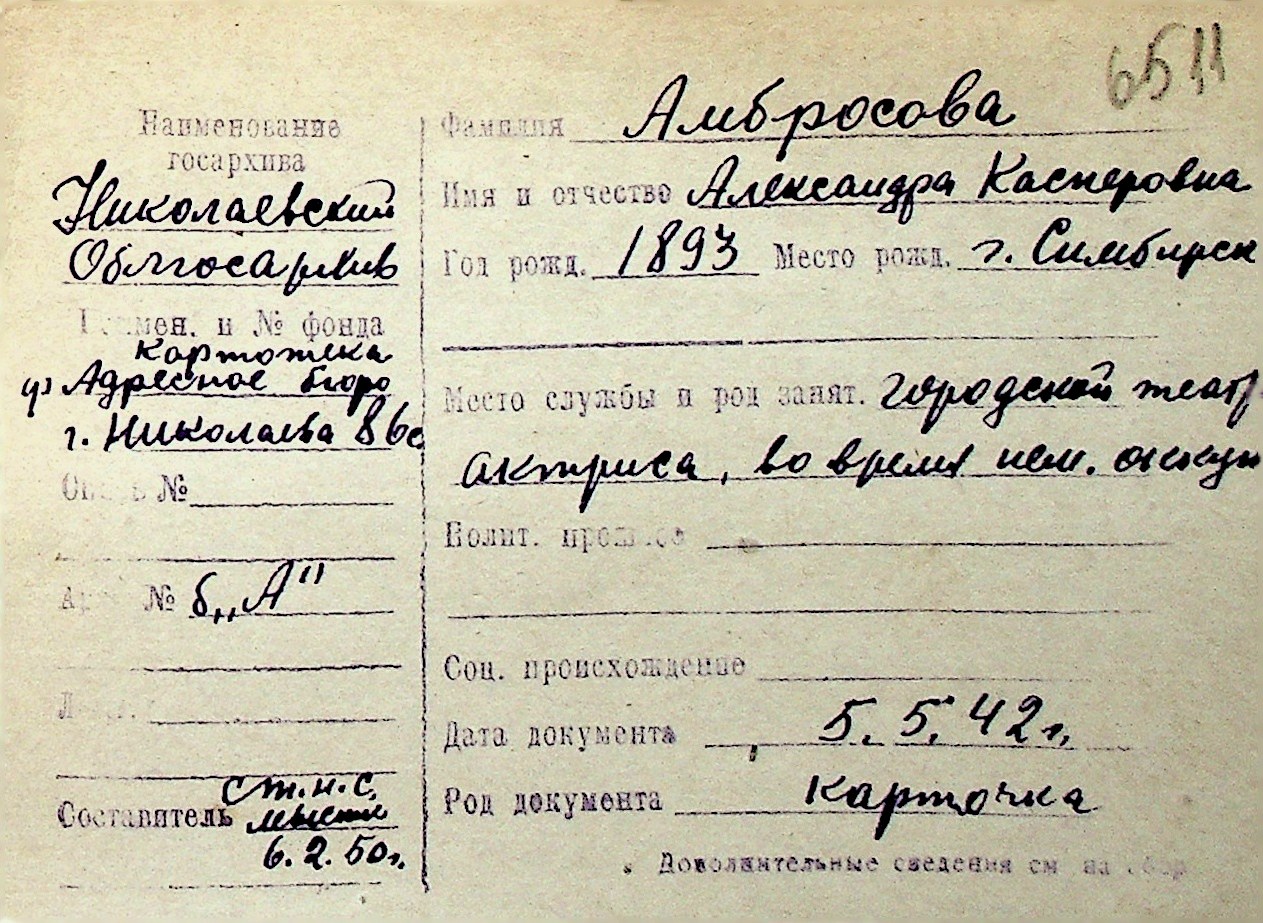 6511
Наименование
госархива
Николаевский
Облгосархив
Наимен. и № фонда
картотека
Адресное бюро
г. Николаева 86с
Опись №
Арх. № б„А"
Л
Составитель ст.н.с.
6.2.50г.
Фамилия Амбросова
Имя и отчество Александра Касперовна
Год рожд. 1893 Место рожд. г. Симбирск
Место службы и род занят. городской театр
актриса, во время нем. оккуп
Полит. прошлое
Соц. происхождение
Дата документа 5.5.42г.
Род документа карточка
Дополнительные сведения см на обор